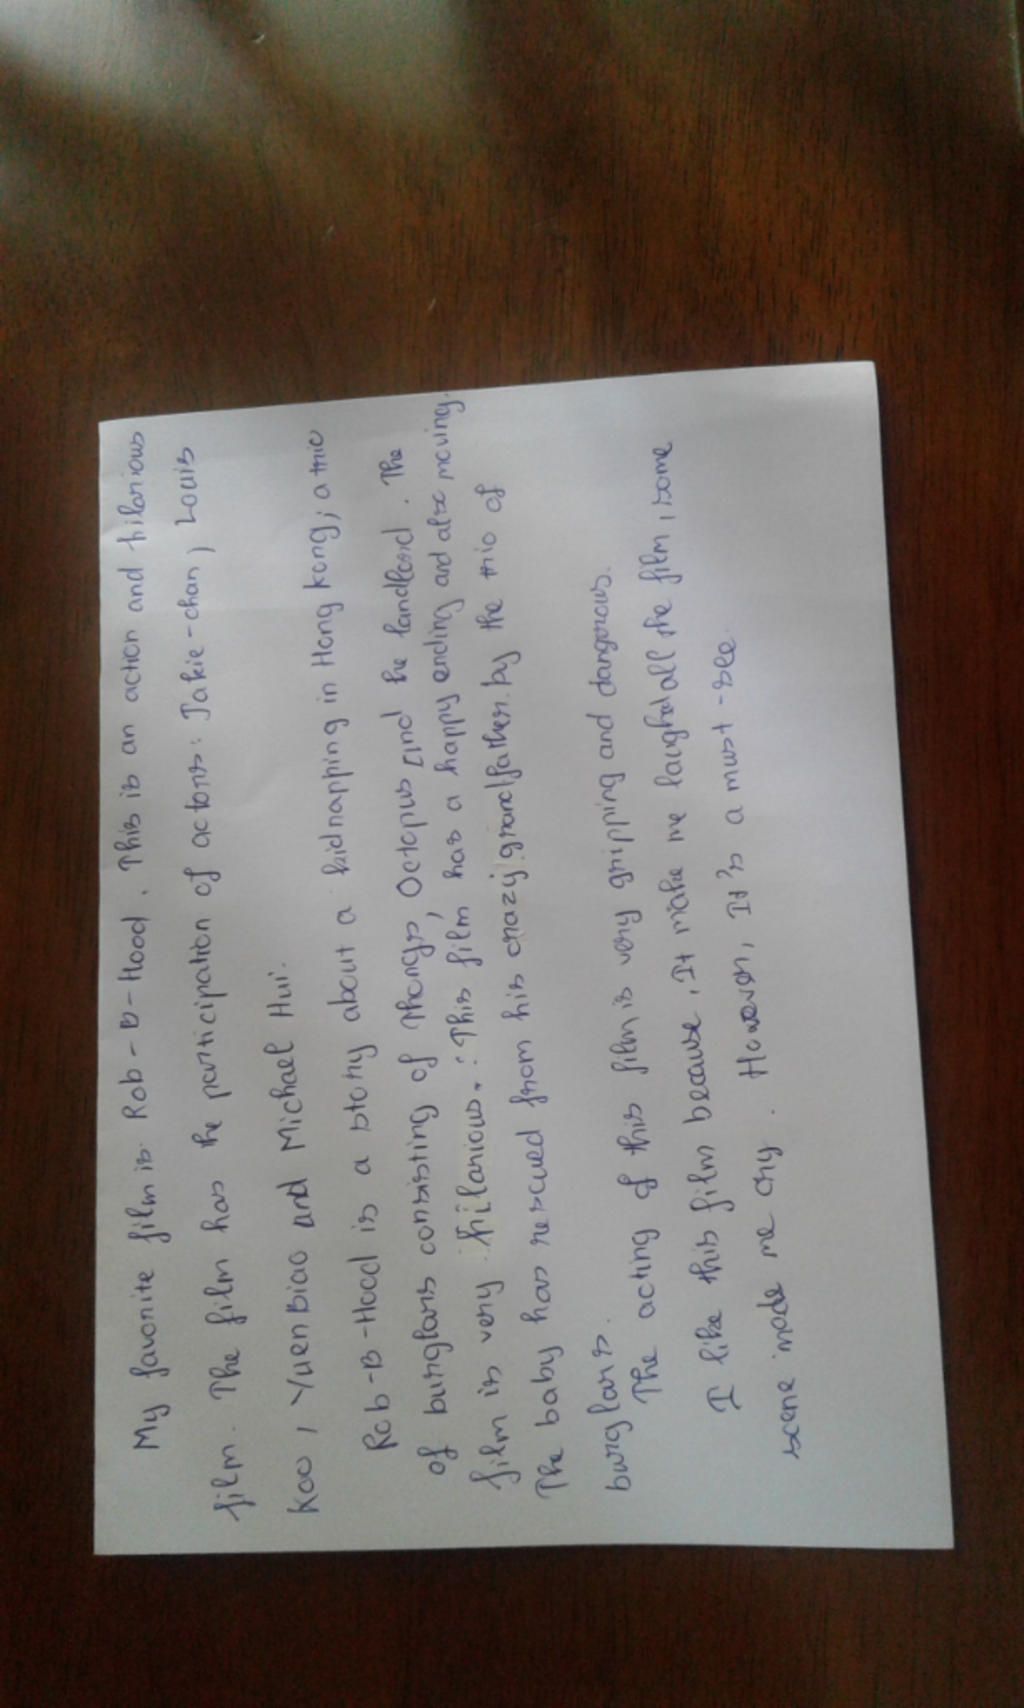 My favorite film is Rob-B-Hood. This is an action and hilarious
film. The film has the participation of actors: Jakie-chan, Louis
Koo, Yuen Biao and Michael Hui.
Rob-B-Hood is a story about a kidnapping in Hong kong; a trio
of burglars consisting of Thongs, Octopus and the landlord. The
film is very hilarious. This film has a happy ending and also moving.
The baby has rescued from his crazy grandfather by the trio of
burglars.
The acting of this film is very gripping and dangerous.
I like this film because, It make me laughed all the film, some
scene made me cry. However, It's a must-see.